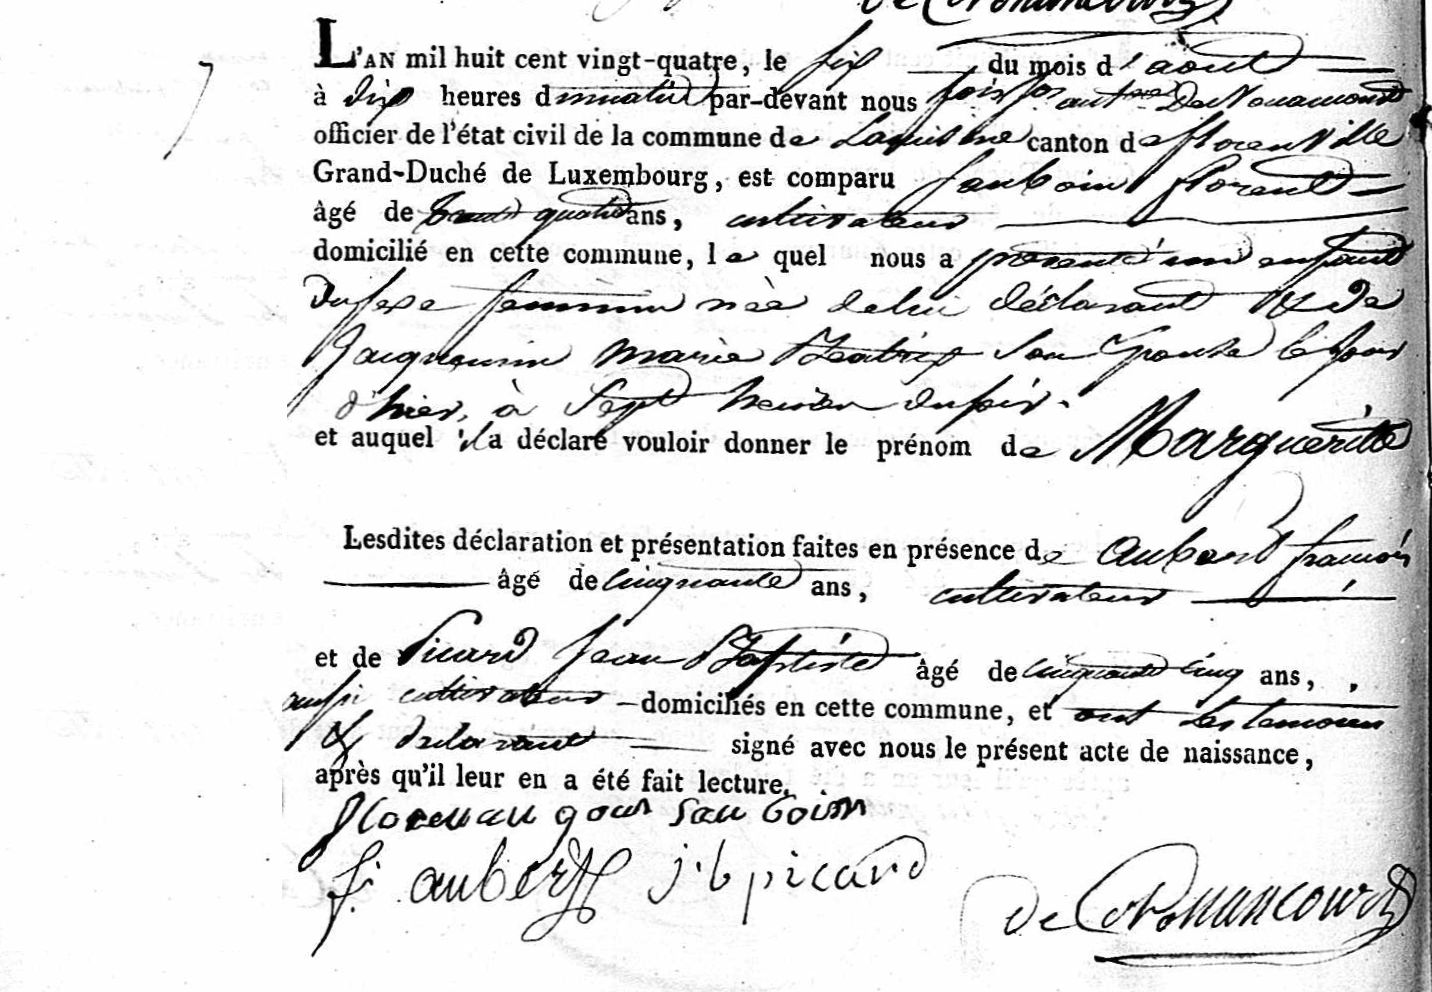 L'AN mil huit cent vingt-quatre, le six du mois d'août
à dix heures du matin par-devant nous
officier de l'état civil de la commune de canton de florenville
Grand-Duché de Luxembourg, est comparu Sauboin florent
âgé de trente quatre ans, cultivateur
domicilié en cette commune, le quel nous a présenté un enfant
du sexe feminin née de lui déclarant & de
Jacquemin marie Beatrix son épouse le jour
d'hier, à sept heures du soir.
et auquel il a déclaré vouloir donner le prénom de Margueritte
Lesdites déclaration et présentation faites en présence de Aubert francois
âgé de cinquante ans, cultivateur
et de Picard Jean Baptiste âgé de cinquante cinq ans,
aussi cultivateur domiciliés en cette commune, et ont les temoins
& declarant signé avec nous le présent acte de naissance,
après qu'il leur en a été fait lecture.
Sauboin
f. aubert j. b picard
de